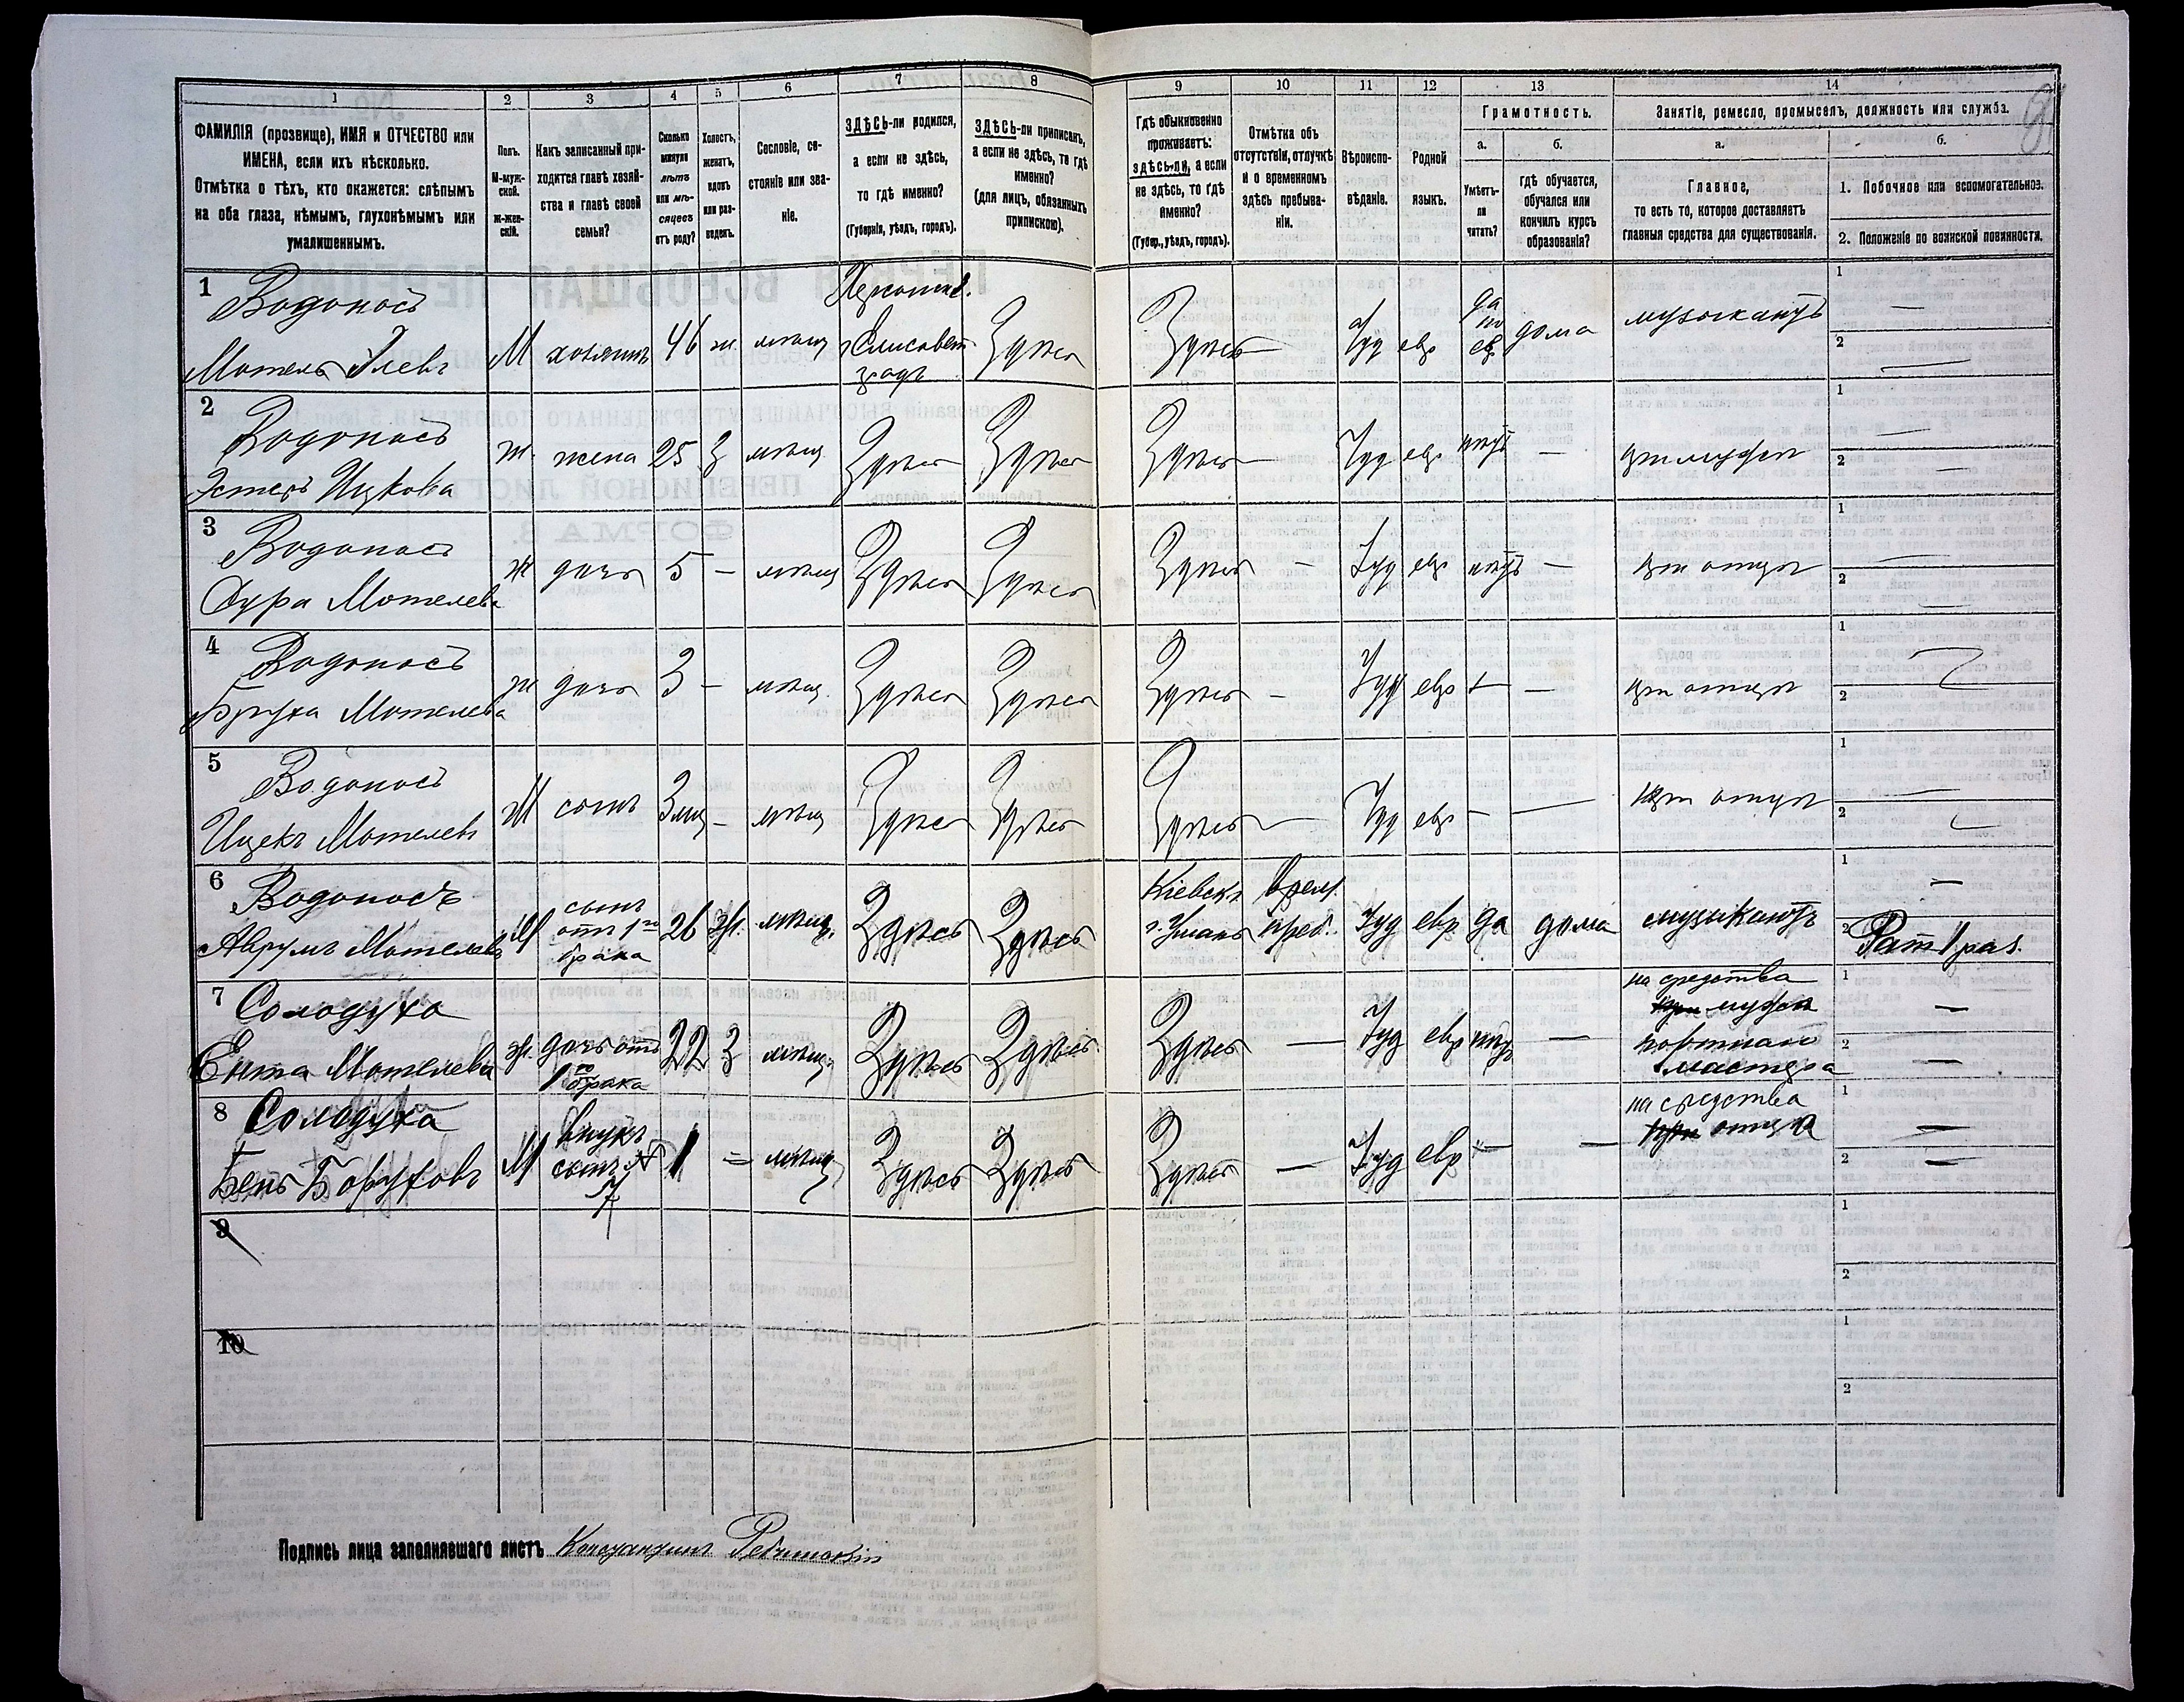 1
2
3
4
5
6
7
8
9
10
11
12
13
14
ФАМИЛІЯ (прозвище), ИМЯ и ОТЧЕСТВО или
ИМЕНА, если ихъ нѣсколько.
Отмѣтка о тѣхъ, кто окажется: слѣпымъ
на оба глаза, нѣмымъ, глухонѣмымъ или
умалишеннымъ.
Полъ.
М-муж-
ской.
Ж-жен-
скій.
Какъ записанный при-
ходится главѣ хозяй-
ства и главѣ своей
семьи?
Сколько
минуло
лѣтъ
или мѣ-
сяцевъ
отъ роду?
Холостъ,
женатъ,
вдовъ
или раз-
веденъ.
Сословіе, со-
стояніе или зва-
ніе.
ЗДѢСЬ-ли родился,
а если не здѣсь,
то гдѣ именно?
(Губернія, уѣздъ, городъ).
ЗДѢСЬ-ли приписанъ,
а если не здѣсь, то гдѣ
именно?
(для лицъ, обязанныхъ
припискою).
Гдѣ обыкновенно
проживаетъ:
здѣсь-ли, а если
не здѣсь, то гдѣ
именно?
(Губер., уѣздъ, городъ).
Отмѣтка объ
отсутствіи, отлучкѣ
и о временномъ
здѣсь пребыва-
ніи.
Вѣроиспо-
вѣданіе.
Родной
языкъ.
Грамотность.
а.
Умѣетъ-
ли
читать?
б.
гдѣ обучается,
обучался или
кончилъ курсъ
образованія?
Занятіе, ремесло, промыселъ, должность или служба.
а.
Главное,
то есть то, которое доставляетъ
главныя средства для существованія.
б.
1. Побочное или вспомогательное.
2. Положеніе по воинской повинности.
1
Водоносъ
Мотель Елевъ
М хозяинъ 46 ж мѣщ
Херсонск.
г. Елисавет
градъ
Здѣсь Здѣсь — Іуд евр
да
по
евр
дома музыкантъ
1 —
2 —
2
Водоносъ
Эстеръ Ицкова
ж. жена 25 З мѣщ. Здѣсь Здѣсь Здѣсь — Іуд евр нѣтъ — при мужѣ
1 —
2 —
3
Водоносъ
Сура Мотелева
ж дочь 5 — мѣщ Здѣсь Здѣсь Здѣсь — Іуд евр нѣтъ — при отцѣ
1 —
2 —
4
Водоносъ
Бруха Мотелева
ж дочь 3 — мѣщ. Здѣсь Здѣсь Здѣсь — Іуд евр — — при отцѣ
1
2
5
Водоносъ
Ицекъ Мотелевъ
М сынъ 3 мц — мѣщ Здѣсь Здѣсь Здѣсь — Іуд евр — — при отцѣ
1 —
2
6
Водоносъ
Аврумъ Мотелевъ
М
сынъ
отъ 1го
брака
26 ж. мѣщ. Здѣсь Здѣсь
Кіевск.
г. Умань
врем.
преб.
Іуд евр да дома музыкантъ
1 —
2 Рат 1 раз.
7
Солодуха
Ента Мотелева
ж.
дочь отъ
1го брака
22 З мѣщ. Здѣсь Здѣсь Здѣсь — Іуд евр нѣтъ —
на средства
при мужа
портнаго
мастера
1 —
2 —
8
Солодуха
Бень Боруховъ
М
внукъ
сынъ №
7
1 = мѣщ Здѣсь Здѣсь Здѣсь — Іуд евр — —
на средства
при отца
1 —
2 —
9
1
2
10
1
2
Подпись лица заполнявшаго листъ